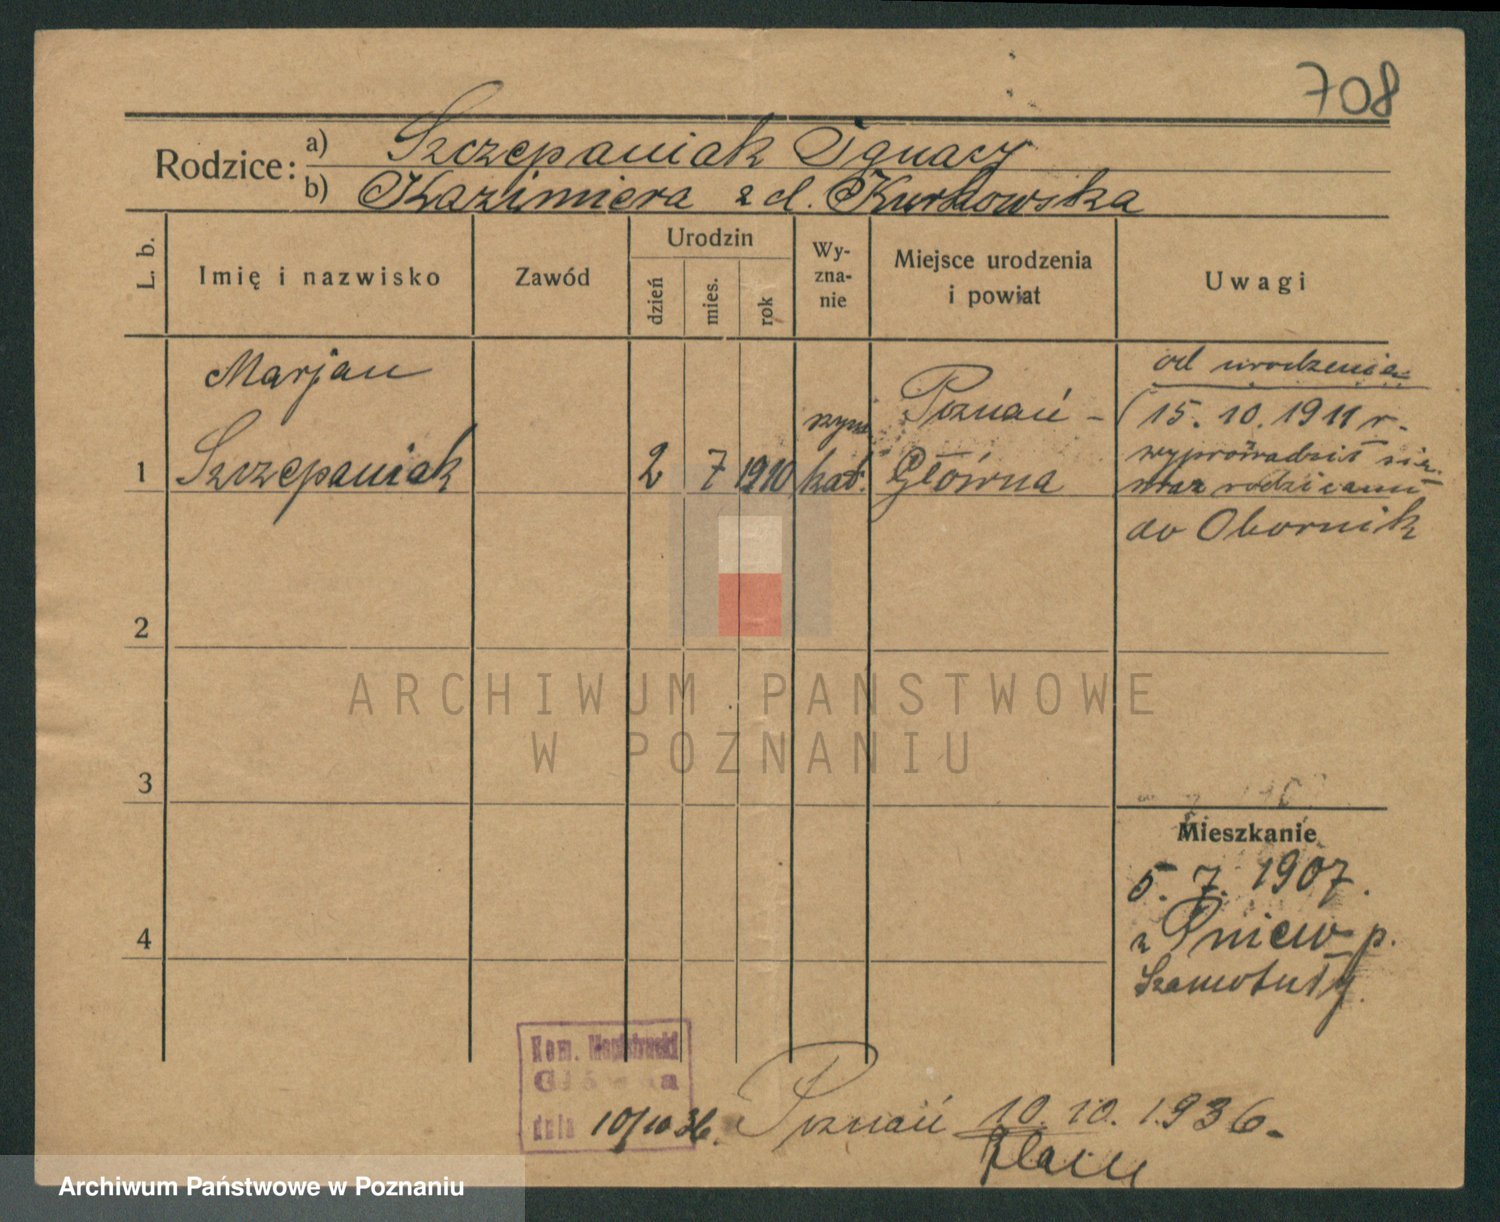 708
Rodzice: a) Szczepaniak Ignacy
b) Kazimiera z d. Kurkowska
L. b.
Imię i nazwisko
Zawód
Urodzin
dzień
mies.
rok
Wy-
zna-
nie
Miejsce urodzenia
i powiat
Uwagi
1
Marjan
Szczepaniak
2
7
1910
rzym
kat.
Poznań -
Główna
od urodzenia
15. 10. 1911 r.
wyprowadził się
wraz rodzicami
do Obornik
2
3
4
Mieszkanie
5. 7. 1907.
z Pniew p.
Szamotuły.
Kom. Magistracki
Główna
dnia 10/10 36.
Poznań 10. 10. 1936.
ARCHIWUM PAŃSTWOWE
W POZNANIU
Archiwum Państwowe w Poznaniu